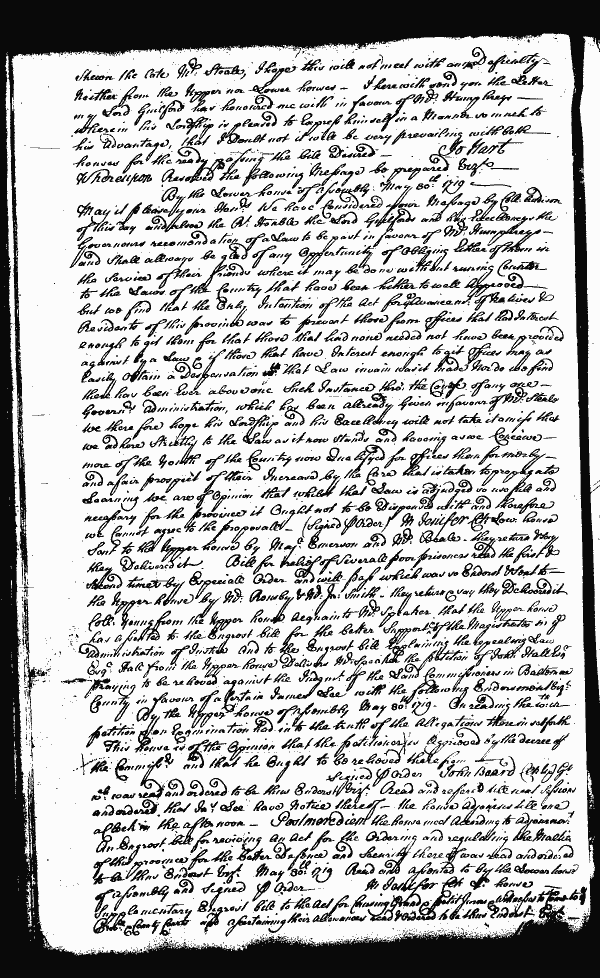 Shewn the late Mr. Steale, I hope this will not meet with any Difficulty
Neither from the Upper nor Lower houses — I herewith send you the Letter
my Lord Guilford has honoured me with in favour of Mr. Humphreys —
wherein his Lordship is pleased to Express himself in a Manner so much to
his Advantage, that I doubt not it will be very prevailing with both
houses for the ready passing the bill Desired Jo Hart
Whereupon Resolved the following Message be prepared Vizt.
By the Lower house of Assembly May 30th 1719 —
May it please your Honrs. We have Considered your Message by Coll. Addison
of this day and alsoe the Rt. Honble the Lord Guilfords and his Excellencys the
Governours recomendation of a Law to be past in favour of Mr. Humphreys —
and Shall allways be glad of any Opportunity of Obliging Either of them in
the Service of their friends where it may be done without runing Counter
to the Laws of the Country that have been hitherto well Approved —
but we find that the Only Intention of the Act for Advancemt. of Natives &
Residents of this province was to prevent those from offices that had Interest
enough to get them for that those that had none needed not have been provided
against by a Law & if those that have Interest enough to get offices may as
Easily Obtain a Despensation that Law in vain was it made Nor do we find
there has been Ever above one Such Instance thro. the Course of any one —
Governrs. Administration, which has been allready Given in favour of Mr. Steale
We therefore hope his Lordship and his Excellency will not take it amiss that
we adhere Strictly to the Law as it now Stands and haveing as we Conceive —
more of the Youth of the Country now Qualifyed for offices than formerly —
and a fair prospect of their Increase by the Care that is taken to propagate
Learning We are of Opinion that whilst that Law is adjudged so usefull and
necessary for the province it Ought not to be Dispensed with and therefore
we Cannot agree to the proposalls — (Signed P Order) M Jenifer Clk Low: house
Sent to the Upper house by Majr. Emerson and Mr. Beale — they return & say
they Delivered it Bill for relief of Severall poor prisoners read the first &
Second times by Especiall Order and will pass which was so Endorst & Sent to
the Upper house by Mr. Rousby & Mr. Ja: Smith — they return & say they Delivered it
Coll. Young from the Upper house Acquaints Mr. Speaker that the Upper house
has assented to the Engrost bill for the better Support of the Magistrates in ye
Administration of Justice And to the Engrost bill Explaining the repealing Law
Esqr. Hall from the Upper house Delivers Mr. Speaker the petition of John Hall Esqr.
praying to be releived against the Judgmt. of the Land Commissioners in Baltemore
County in favour of a Certain James Lee with the following Endorsement Vizt.
By the Upper house of Assembly May 30th 1719 — On reading the within
petition & an Examination had in to the truth of the Allegations therein set forth
This house is of the Opinion that the petitioner is Agrieved by the decree of
the Commissrs. and that he Ought to be releived therefrom —
Signed P Order John Beard
wch. was read and ordered to be thus Endorst Vizt. Read and referrd till next Sessions
and ordered that Jas. Lee have Notice thereof — the house Adjourns till one
aClock in the afternoon — Post meridiem the house met According to Adjournmt.
An Engrost bill for reviving an Act for the Ordering and regulating the Malitia
of this province for the better Defence and Security thereof was read and ordered
to be thus Endorst Vizt. May 30th 1719 Read and assented to by the Lower house
of Assembly and Signed P Order M Jenifer Clk Lr. house
Supplementary Engrost bill to the Act for Causing Grand & petit Jurors & Witnesses to Come to
Prov. & County Courts and ascertaining their Allowances read & Ordered to be thus Endorst Vizt